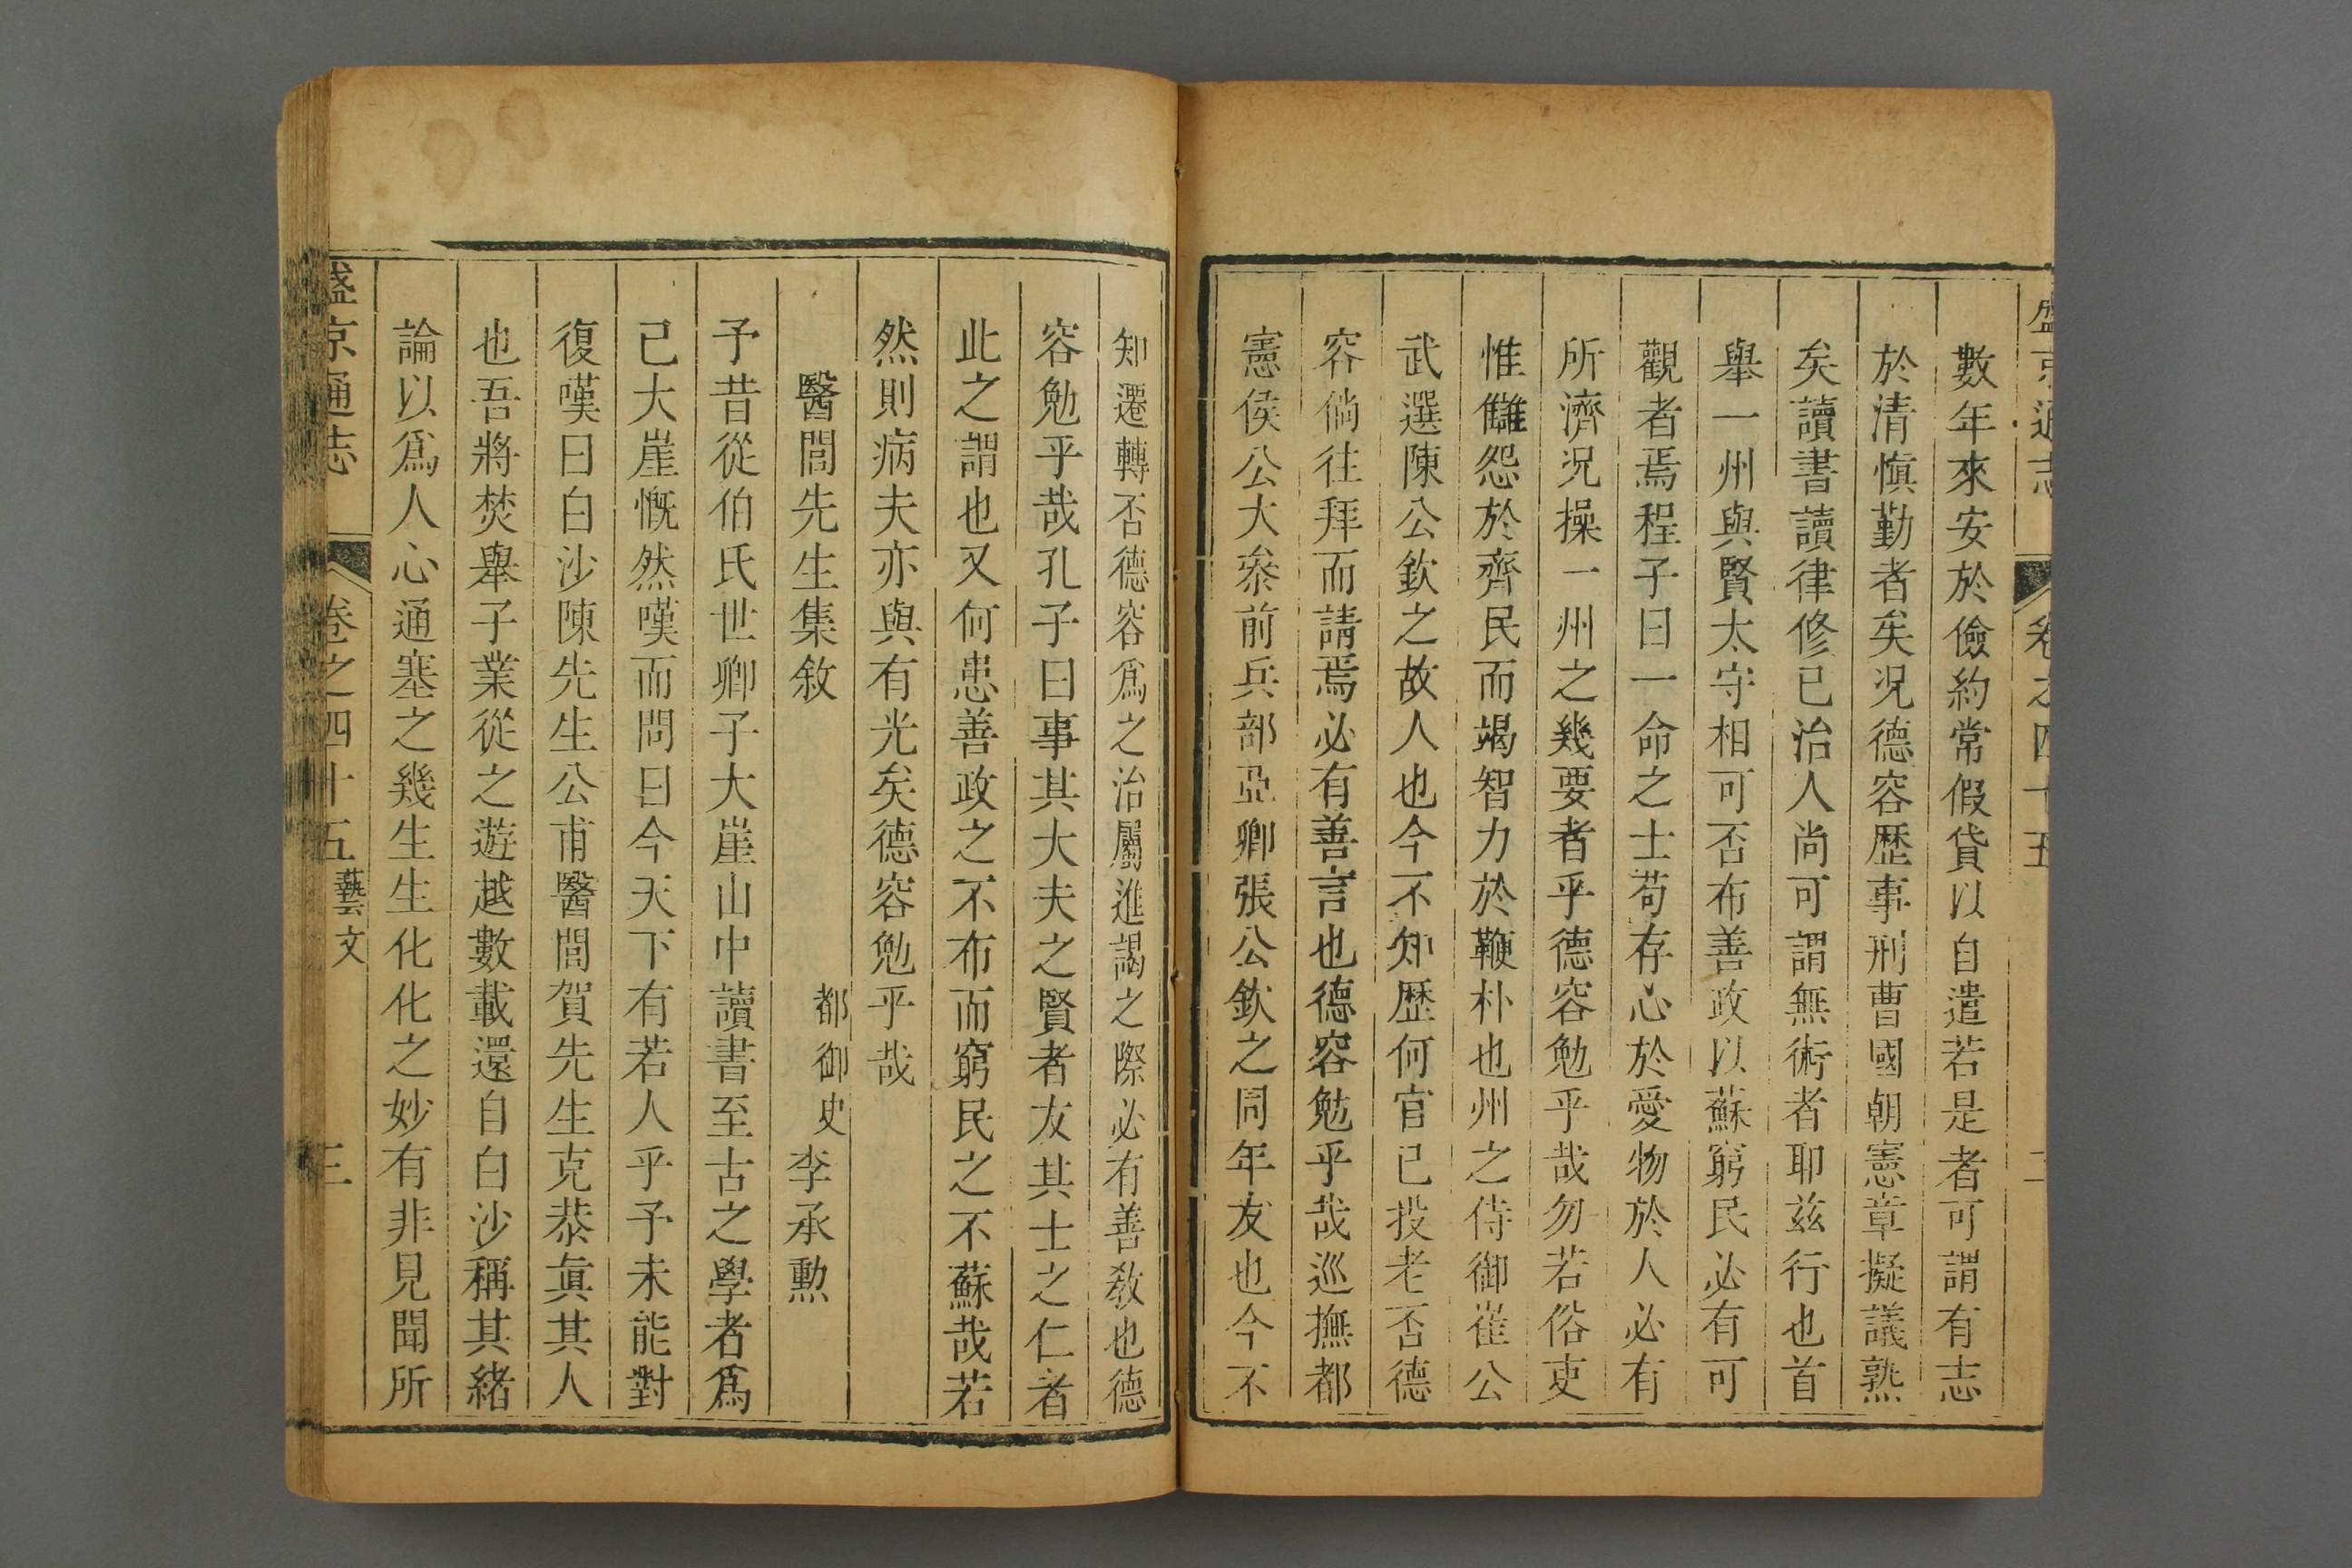 盛京通志 卷之四十五 二
數年來安於儉約常假貸以自遣若是者可謂有志
於清愼勤者矣況德容歷事刑曹國朝憲章擬議熟
矣讀書讀律修已治人尚可謂無術者耶兹行也首
舉一州與賢太守相可否布善政以蘇窮民必有可
觀者焉程子曰一命之士苟存心於愛物於人必有
所濟況操一州之幾要者乎德容勉乎哉勿若俗吏
惟讎怨於齊民而竭智力於鞭朴也州之侍御崔公
武選陳公欽之故人也今不知歷何官已投老否德
容倘往拜而請焉必有善言也德容勉乎哉巡撫都
憲侯公大叅前兵部亞卿張公欽之同年友也今不
知遷轉否德容爲之治屬進謁之際必有善敎也德
容勉乎哉孔子曰事其大夫之賢者友其士之仁者
此之謂也又何患善政之不布而窮民之不蘇哉若
然則病夫亦與有光矣德容勉乎哉
醫閭先生集敘
都御史李承勲
予昔從伯氏世卿子大崖山中讀書至古之學者爲
己大崖慨然嘆而問曰今天下有若人乎予未能對
復嘆曰白沙陳先生公甫醫閭賀先生克恭眞其人
也吾將焚舉子業從之遊越數載還自白沙稱其緒
論以爲人心通塞之幾生生化化之妙有非見聞所
盛京通志 卷之四十五 藝文 三